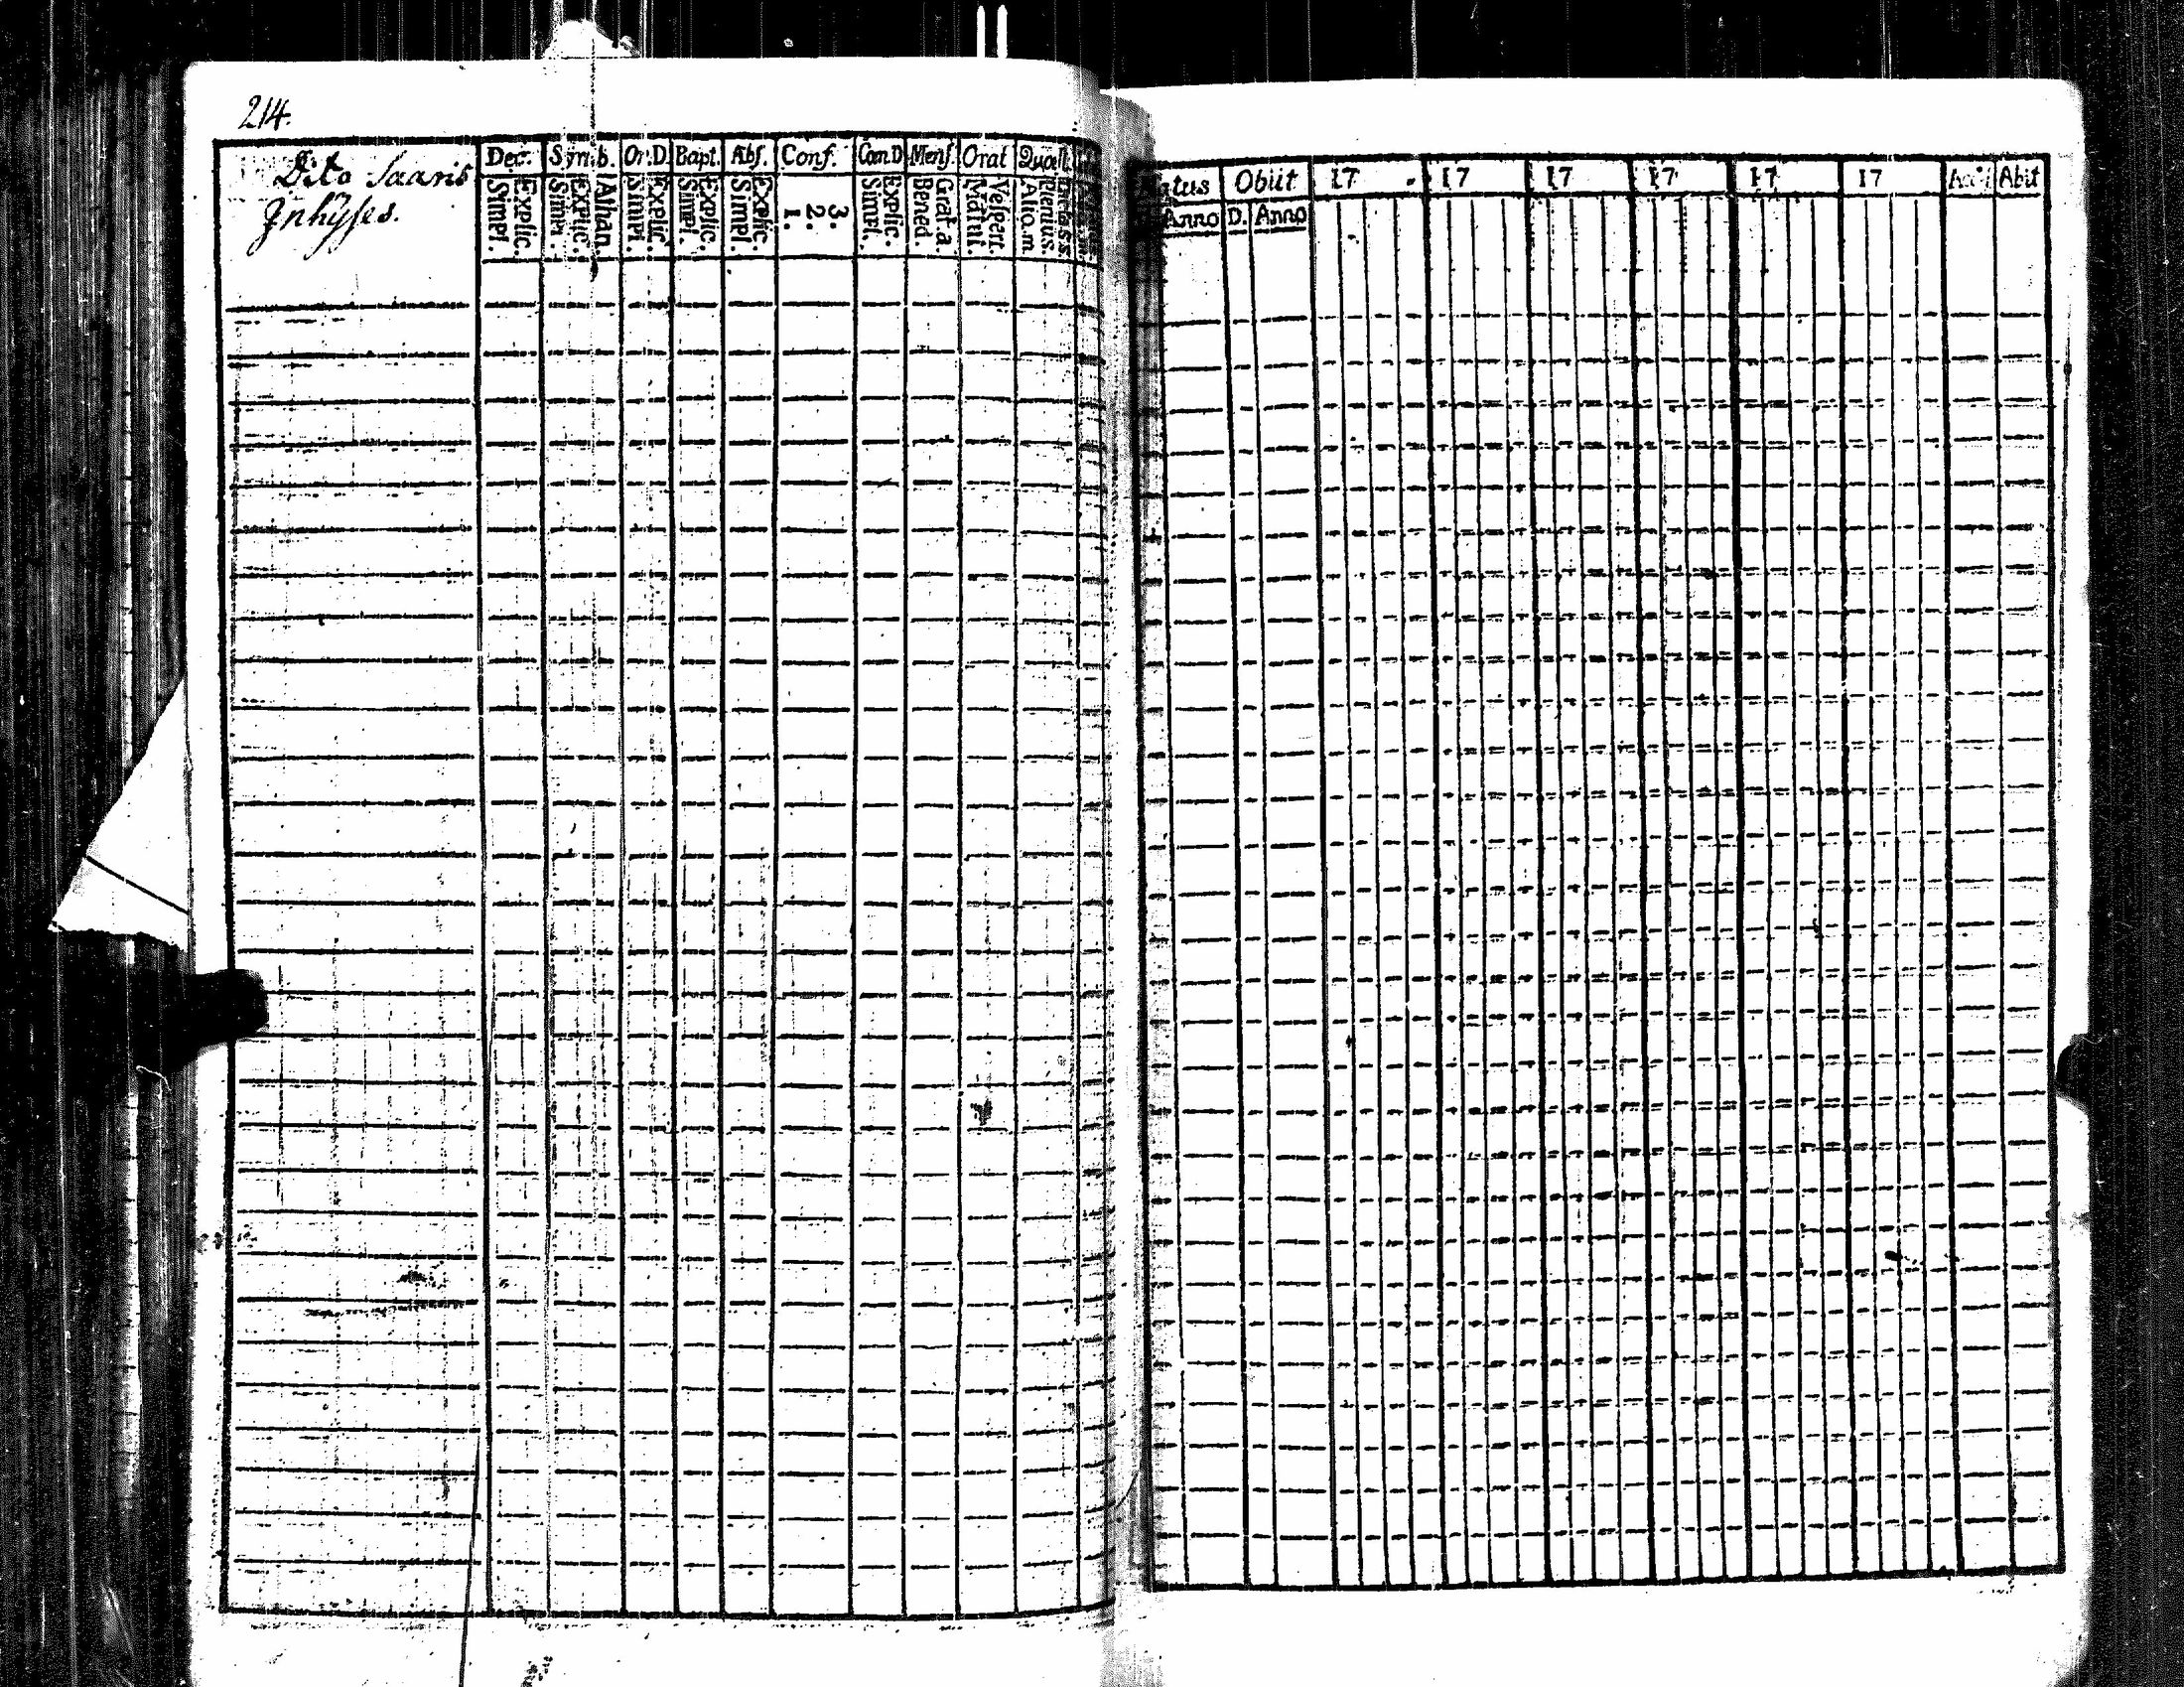 214.
Dito Saaris
Inhyses.
Dec. Symb. Or.D. Bapt. Abs. Conf. Cœn.D Mens. Orat Quæst.
Simpl. Explic. Simpl. Explic. Athan. Simpl. Explic. Simpl. Explic. Simpl. Explic. 1. 2. 3. Simpl. Explic. Bened. Grat.a. Matut. Vesper. Alio.m Plenius.
Natus Obiit 17 17 17 17 17 17 Abit
Anno D. Anno